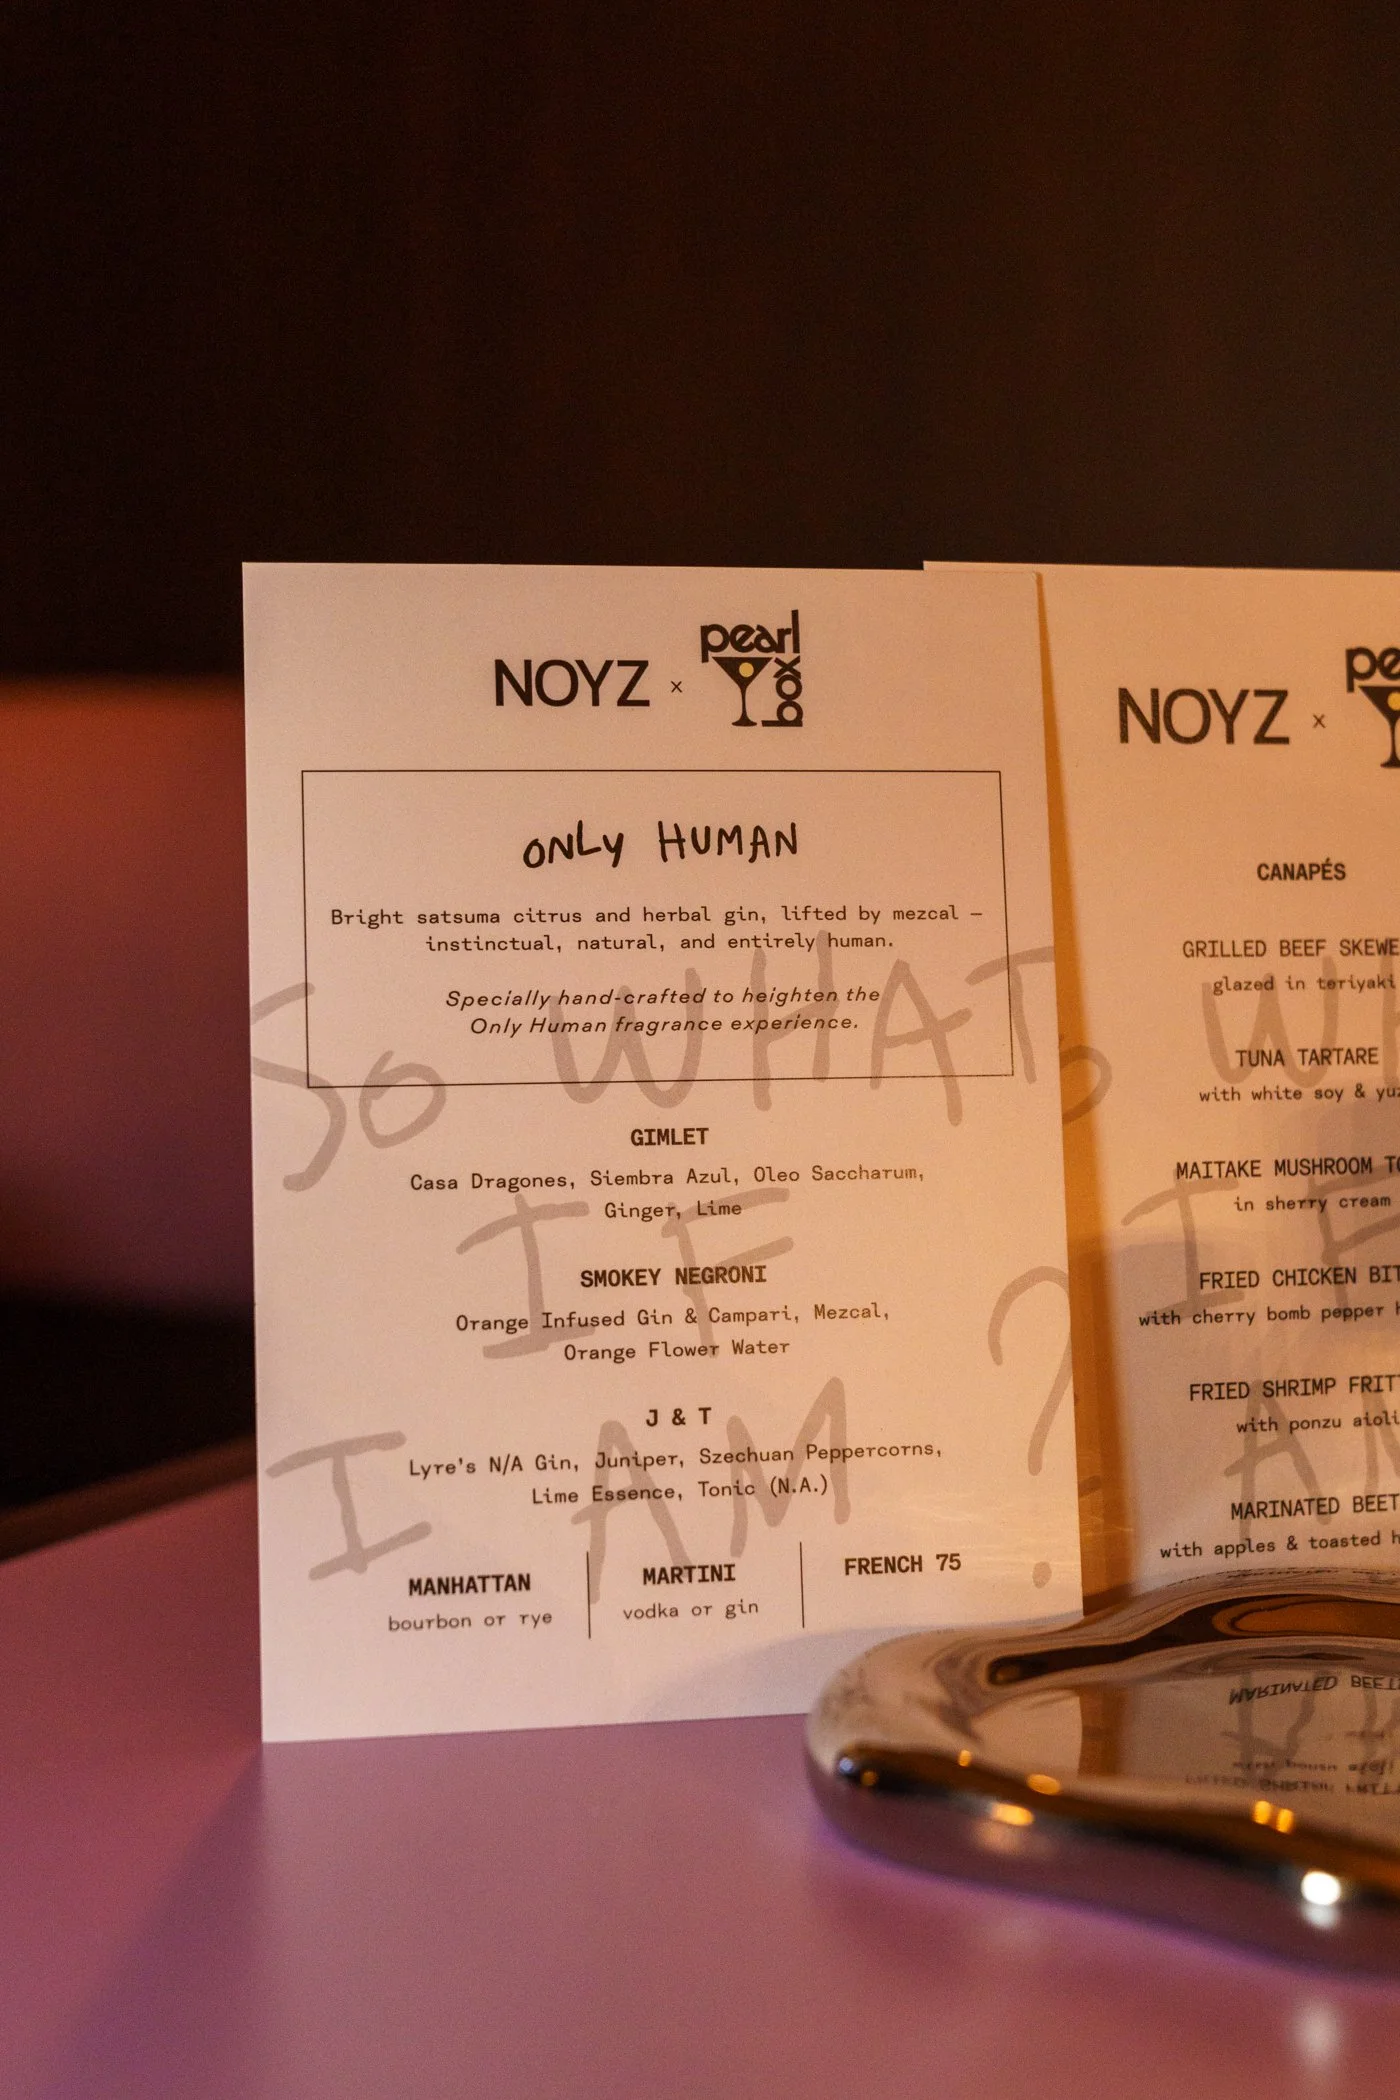 NOYZ × pearl box
ONLY HUMAN
Bright satsuma citrus and herbal gin, lifted by mezcal —
instinctual, natural, and entirely human.
Specially hand-crafted to heighten the
Only Human fragrance experience.
SO WHAT,
IF
I AM?
GIMLET
Casa Dragones, Siembra Azul, Oleo Saccharum,
Ginger, Lime
SMOKEY NEGRONI
Orange Infused Gin & Campari, Mezcal,
Orange Flower Water
J & T
Lyre's N/A Gin, Juniper, Szechuan Peppercorns,
Lime Essence, Tonic (N.A.)
MANHATTAN
bourbon or rye
MARTINI
vodka or gin
FRENCH 75
NOYZ ×
CANAPÉS
GRILLED BEEF
glazed in teriyaki
TUNA TARTARE
with white soy &
MAITAKE MUSHROOM
in sherry cream
FRIED CHICKEN
with cherry bomb pepper
FRIED SHRIMP
with ponzu aioli
MARINATED BEET
with apples & toasted
MARINATED